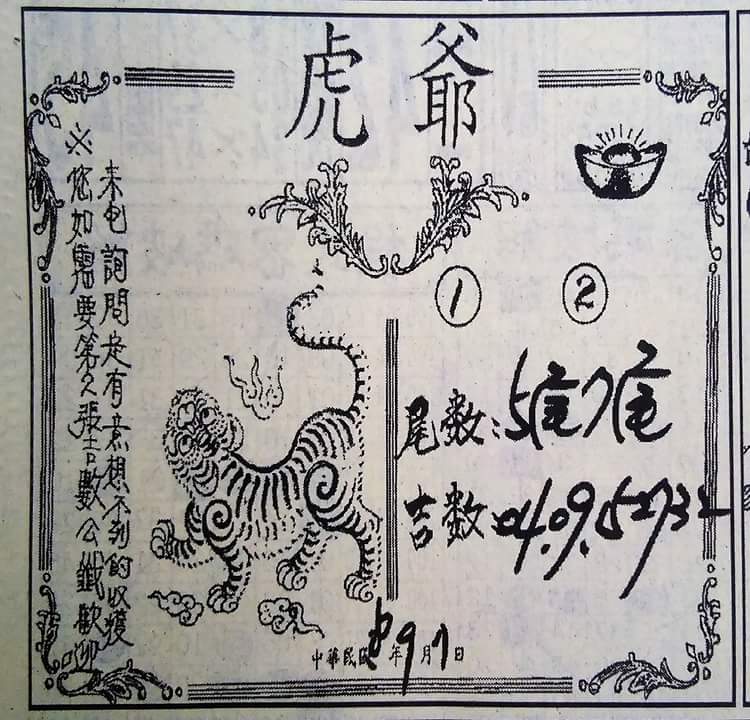 虎爺
① ②
※您如需要第2張吉數公籤歡迎
來电詢問定有意想不到的收獲
尾數:5尾7尾
吉數 04.09.
中華民國 年9月7日